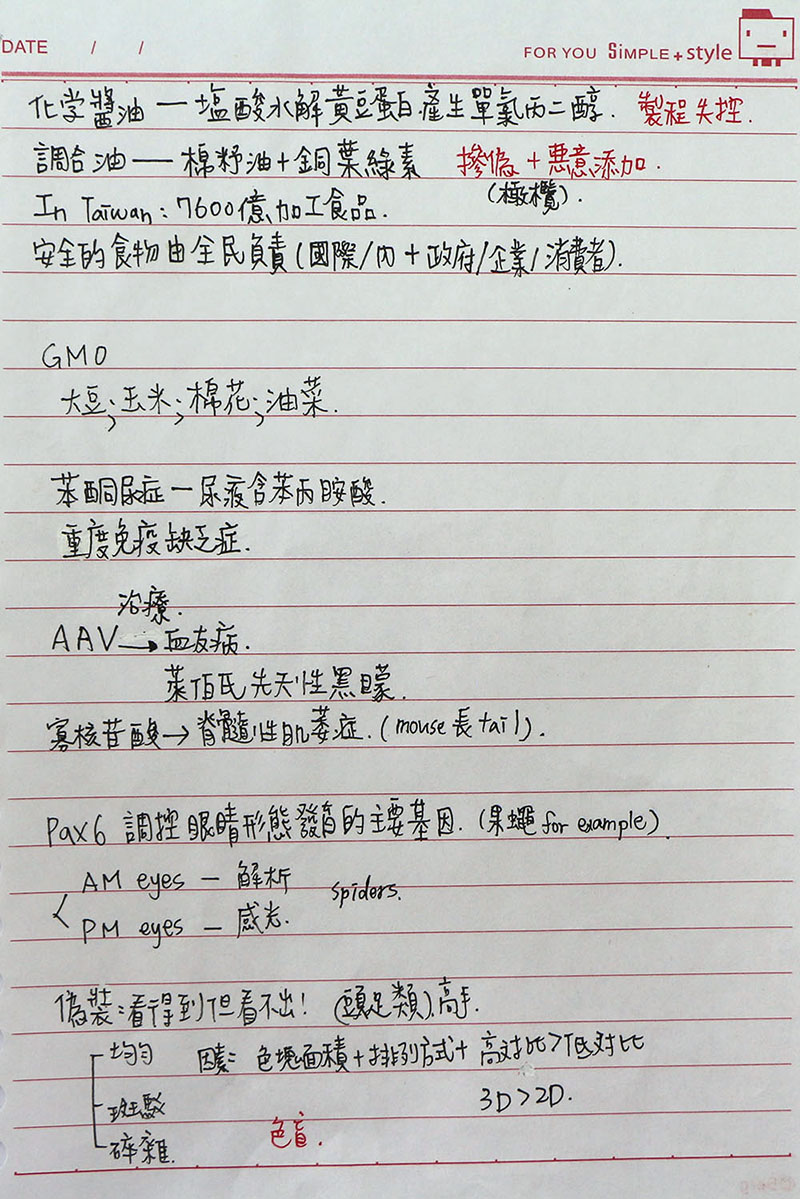 DATE / /
FOR YOU SiMPLE + style
化学醬油 — 塩酸水解黃豆蛋白.產生單氯丙二醇. 製程失控.
調合油 — 棉籽油+銅葉綠素 摻偽 + 惡意添加.
(橄欖).
In Taiwan: 7600億加工食品.
安全的食物由全民負責(國際/內 + 政府/企業/消費者).
GMO
大豆;玉米;棉花;油菜.
苯酮尿症 — 尿液含苯丙胺酸.
重度免疫缺乏症.
治療.
AAV → 血友病.
萊伯氏先天性黑矇.
寡核苷酸 → 脊髓性肌萎症.(mouse長tail).
Pax6 調控眼睛形態發育的主要基因.(果蠅 for example).
AM eyes — 解析 spiders.
PM eyes — 感光.
偽裝:看得到但看不出! (頭足類).高手.
均勻 因素: 色塊面積+排列方式+高対比>低対比
斑駁 3D>2D.
碎雜. 色盲.